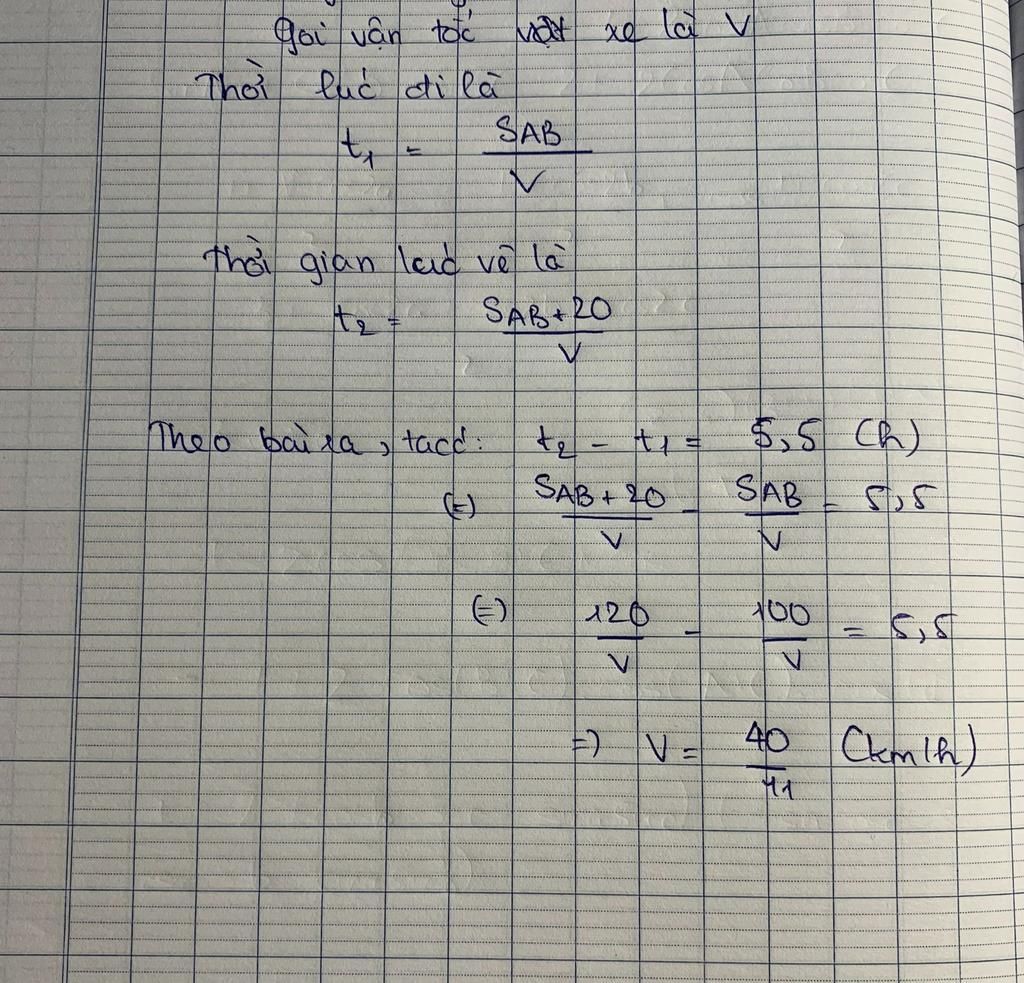 Gọi vận tốc xe là V
Thời lúc đi là
t₁ = SAB / V
Thời gian lúc về là
t₂ = SAB + 20 / V
Theo bài ra, ta có: t₂ - t₁ = 5,5 (h)
(=) SAB + 20 / V - SAB / V = 5,5
(=) 120 / V - 100 / V = 5,5
=) V = 40 / 11 (km/h)